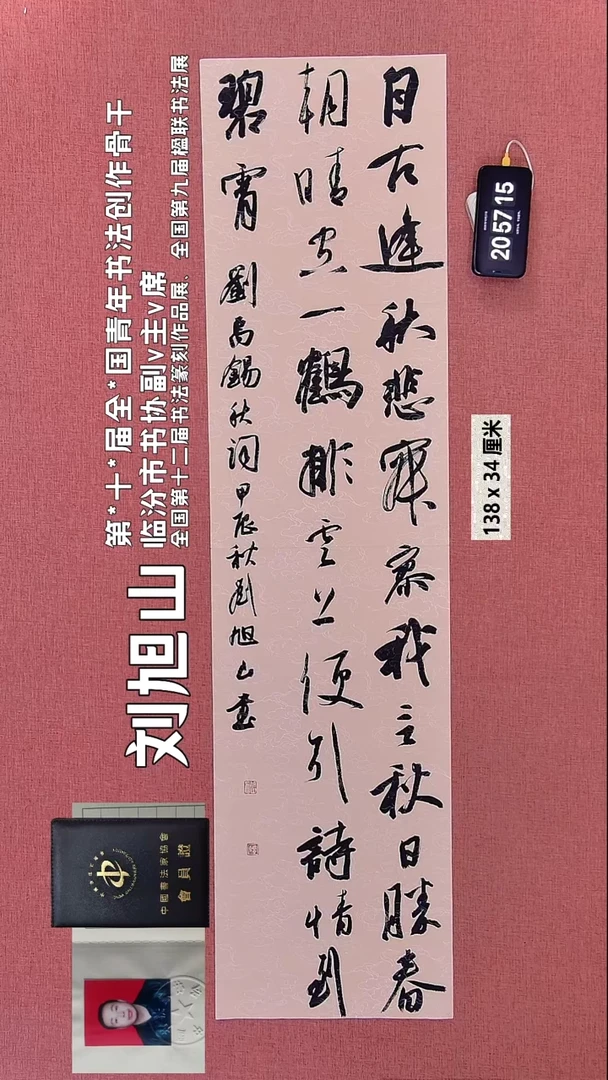 自古逢秋悲寂寥我言秋日勝春
朝晴空一鶴排雲上便引詩情到
碧霄 劉禹錫秋詞甲辰秋劉旭山書
第*十*届全*国青年书法创作骨干
临汾市书协副v主v席
全国第十二届书法篆刻作品展、全国第九届楹联书法展
刘旭山
中國書法家協會
會員證
20 57 15
138 x 34 厘米